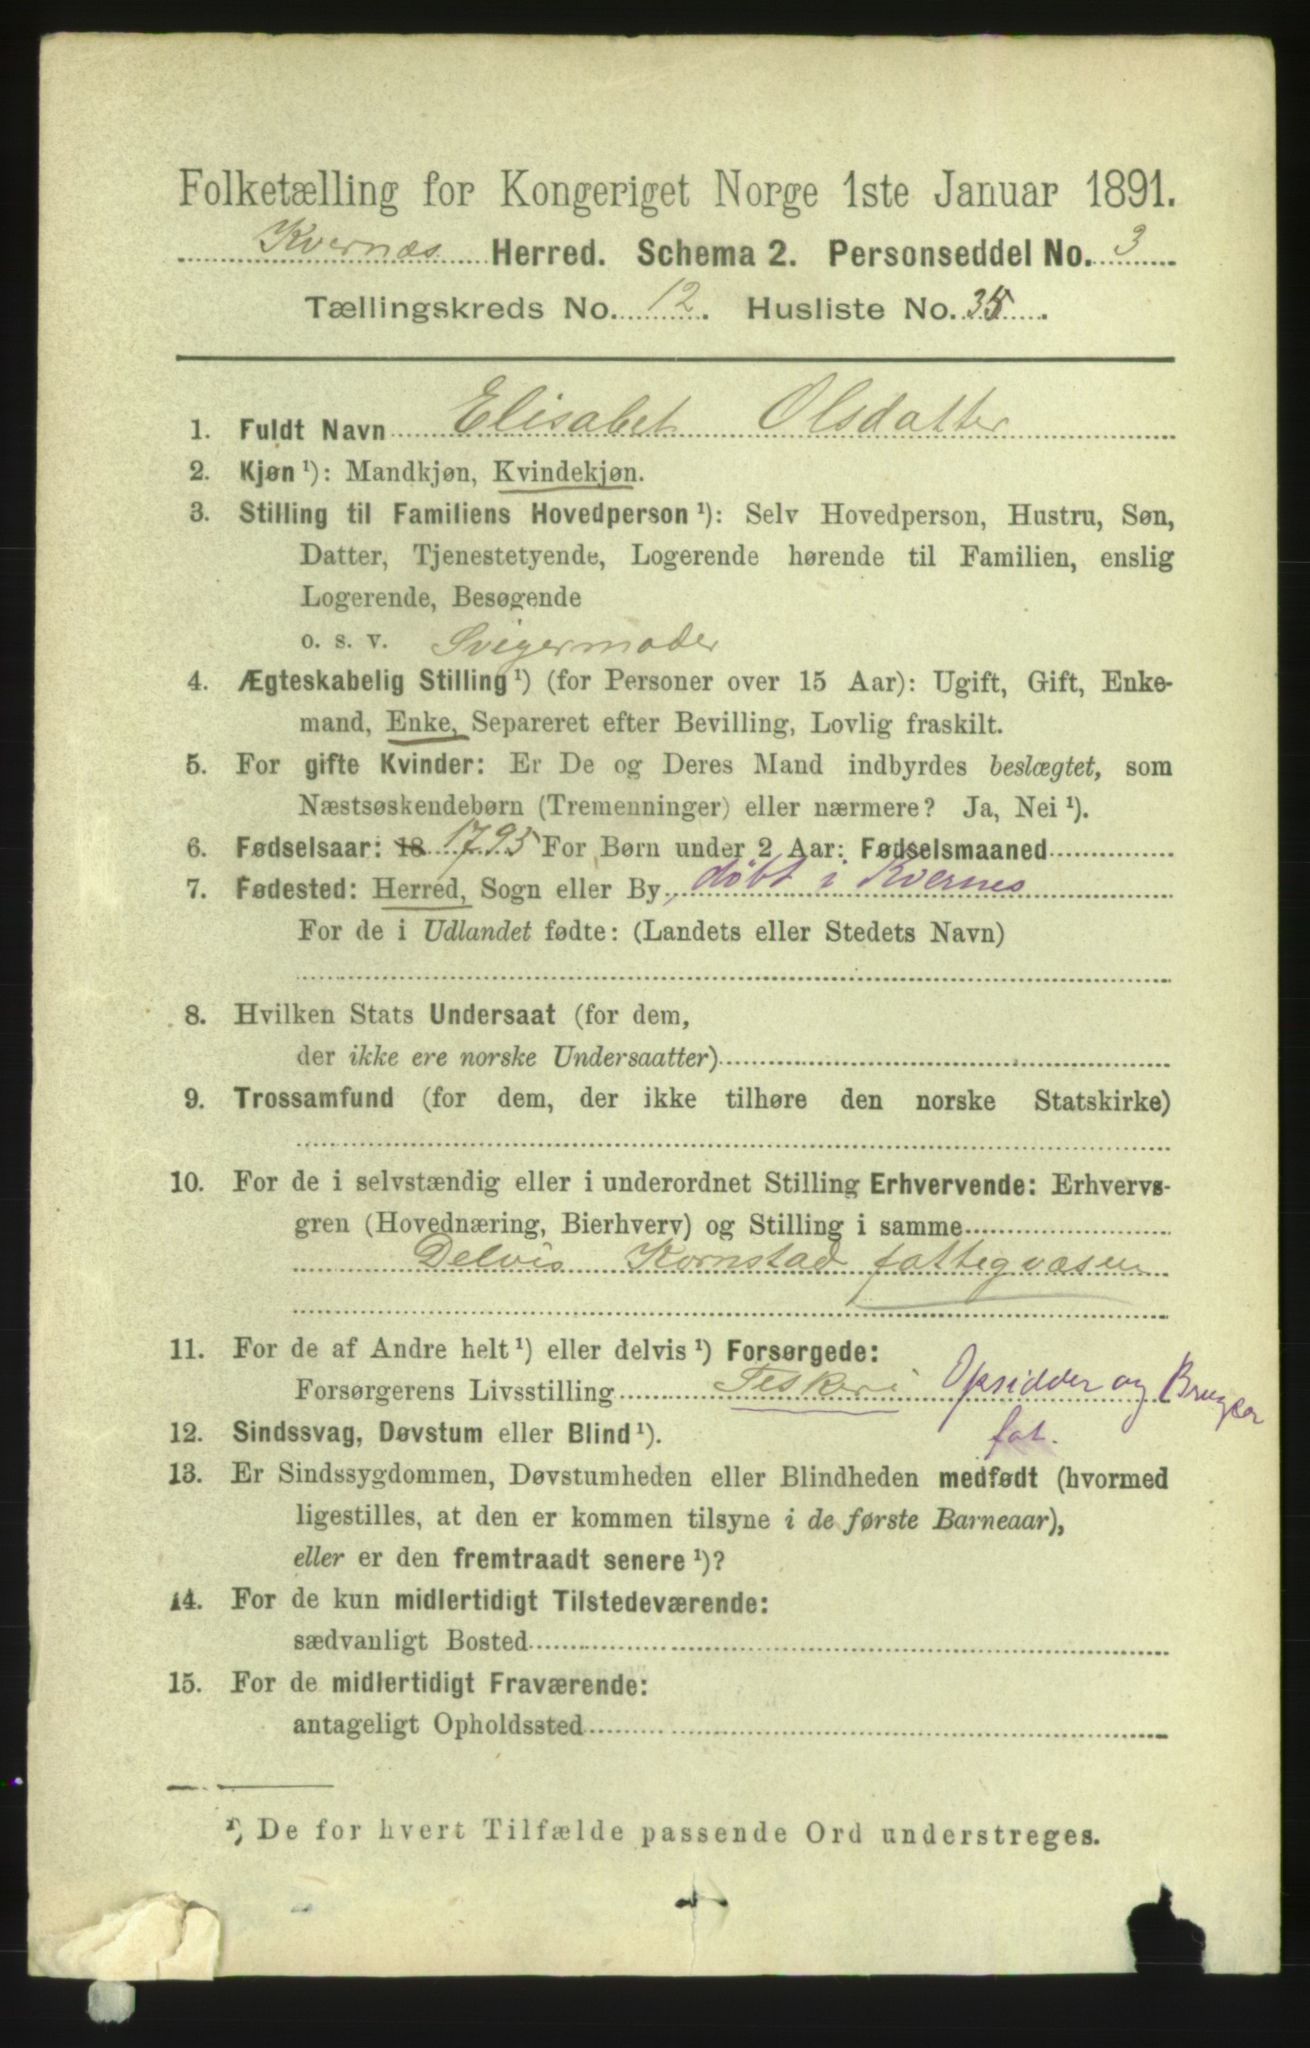 Folketælling for Kongeriget Norge 1ste Januar 1891.
Kvernæs Herred. Schema 2. Personseddel No. 3
Tællingskreds No. 12. Husliste No. 35.
1. Fuldt Navn Elisabet Olsdatter
2. Kjøn ¹): Mandkjøn, Kvindekjøn.
3. Stilling til Familiens Hovedperson ¹): Selv Hovedperson, Hustru, Søn,
Datter, Tjenestetyende, Logerende hørende til Familien, enslig
Logerende, Besøgende
o. s. v. Svigermoder
4. Ægteskabelig Stilling ¹) (for Personer over 15 Aar): Ugift, Gift, Enke-
mand, Enke, Separeret efter Bevilling, Lovlig fraskilt.
5. For gifte Kvinder: Er De og Deres Mand indbyrdes beslægtet, som
Næstsøskendebørn (Tremenninger) eller nærmere? Ja, Nei ¹).
6. Fødselsaar: 18 1795 For Børn under 2 Aar: Fødselsmaaned
7. Fødested: Herred, Sogn eller By, døbt i Kvernes
For de i Udlandet fødte: (Landets eller Stedets Navn)
8. Hvilken Stats Undersaat (for dem,
der ikke ere norske Undersaatter)
9. Trossamfund (for dem, der ikke tilhøre den norske Statskirke)
10. For de i selvstændig eller i underordnet Stilling Erhvervende: Erhvervs-
gren (Hovednæring, Bierhverv) og Stilling i samme
Delvis Kornstad fattigvæsen
11. For de af Andre helt ¹) eller delvis ¹) Forsørgede:
Forsørgerens Livsstilling Fiskeri Opsidder og Bruger
12. Sindssvag, Døvstum eller Blind ¹). fat.
13. Er Sindssygdommen, Døvstumheden eller Blindheden medfødt (hvormed
ligestilles, at den er kommen tilsyne i de første Barneaar),
eller er den fremtraadt senere ¹)?
14. For de kun midlertidigt Tilstedeværende:
sædvanligt Bosted
15. For de midlertidigt Fraværende:
antageligt Opholdssted
¹) De for hvert Tilfælde passende Ord understreges.